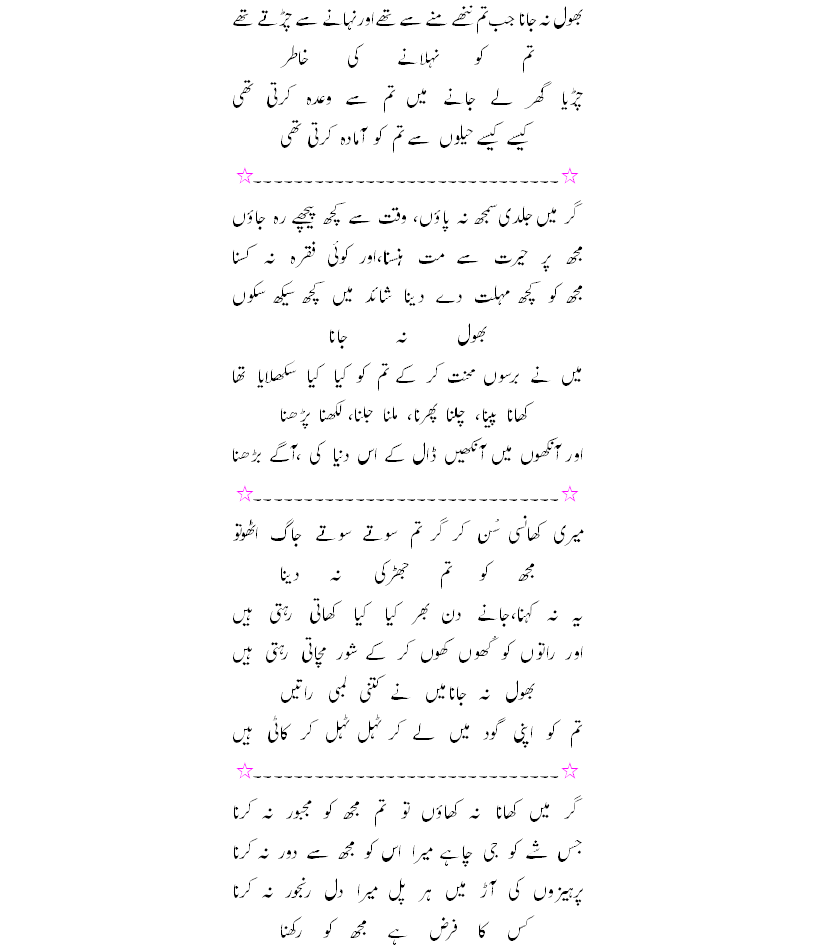 بھول نہ جانا جب تم ننھے منے سے تھے اور نہانے سے چڑتے تھے
تم کو نہلانے کی خاطر
چڑیا گھر لے جانے میں تم سے وعدہ کرتی تھی
کیسے کیسے حیلوں سے تم کو آمادہ کرتی تھی
☆------------------------------☆
گر میں جلدی سمجھ نہ پاؤں، وقت سے کچھ پیچھے رہ جاؤں
مجھ پر حیرت سے مت ہنسنا،اور کوئی فقرہ نہ کسنا
مجھ کو کچھ مہلت دے دینا شائد میں کچھ سیکھ سکوں
بھول نہ جانا
میں نے برسوں محنت کر کے تم کو کیا کیا سکھلایا تھا
کھانا پینا، چلنا پھرنا، ملنا جلنا، لکھنا پڑھنا
اور آنکھوں میں آنکھیں ڈال کے اس دنیا کی ،آگے بڑھنا
☆------------------------------☆
میری کھانسی سُن کر گر تم سوتے سوتے جاگ اٹھوتو
مجھ کو تم جھڑکی نہ دینا
یہ نہ کہنا،جانے دن بھر کیا کیا کھاتی رہتی ہیں
اور راتوں کو کُھوں کھوں کر کے شور مچاتی رہتی ہیں
بھول نہ جانا میں نے کتنی لمبی راتیں
تم کو اپنی گود میں لے کر ٹہل ٹہل کر کاٹی ہیں
☆------------------------------☆
گر میں کھانا نہ کھاؤں تو تم مجھ کو مجبور نہ کرنا
جس شے کو جی چاہے میرا اس کو مجھ سے دور نہ کرنا
پرہیزوں کی آڑ میں ہر پل میرا دل رنجور نہ کرنا
کس کا فرض ہے مجھ کو رکھنا